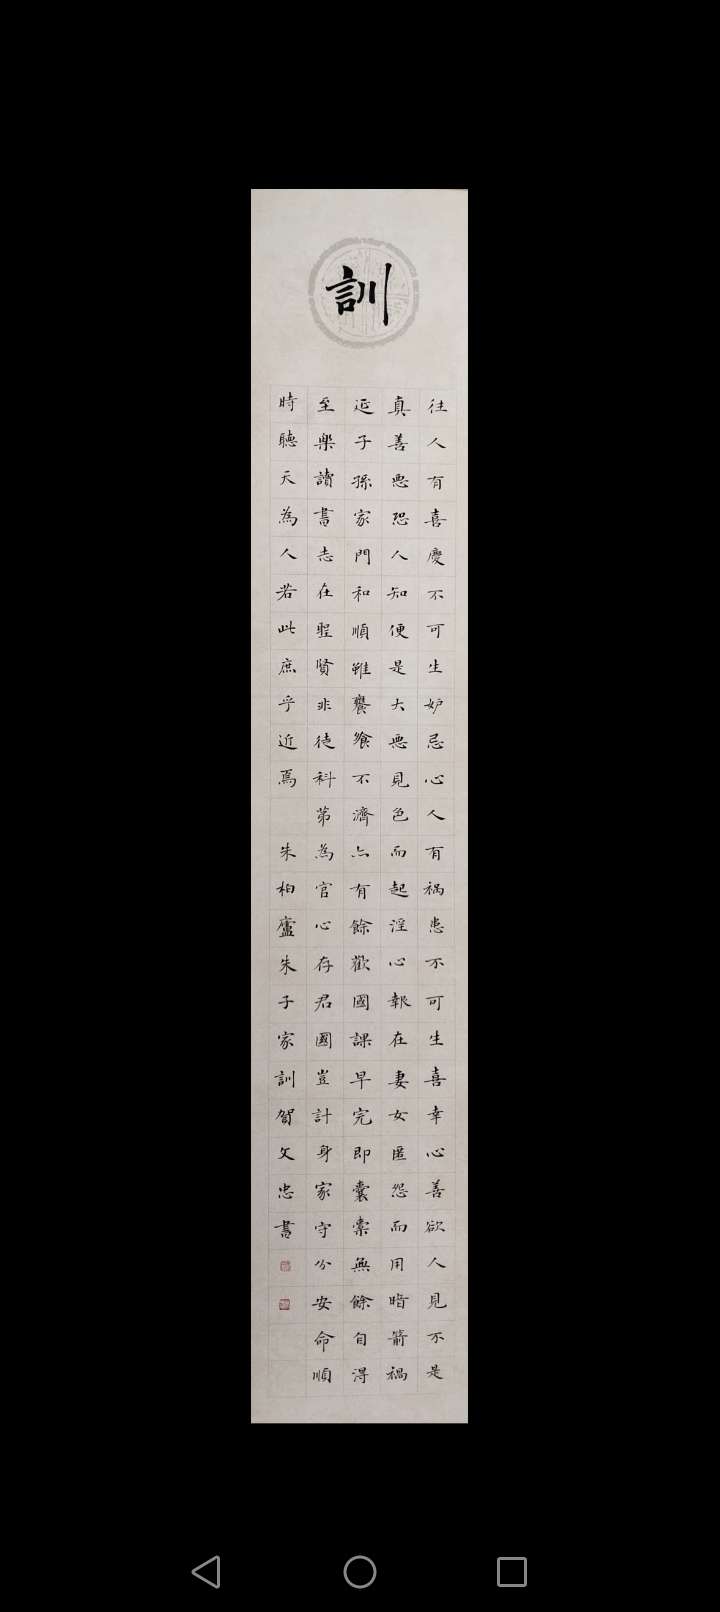 訓
往人有喜慶不可生妒忌心人有禍患不可生喜幸心善欲人見不是
真善悪恐人知便是大悪見色而起淫心報在妻女匿怨而用暗箭禍
延子孫家門和順雖饔飧不濟亦有餘歡國課早完即囊橐無餘自得
至樂讀書志在聖賢非徒科第為官心存君國豈計身家守分安命順
時聽天為人若此庶乎近焉 朱柏廬朱子家訓賀文忠書